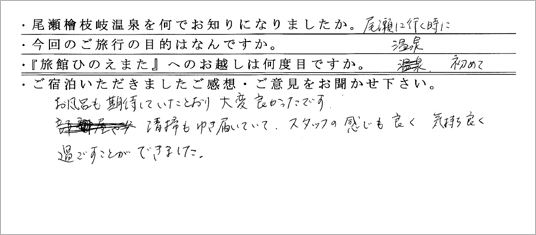 ・尾瀬檜枝岐温泉を何でお知りになりましたか。尾瀬に行く時に
・今回のご旅行の目的はなんですか。 温泉
・『旅館ひのえまた』へのお越しは何度目ですか。 初めて
・ご宿泊いただきましたご感想・ご意見をお聞かせ下さい。
お風呂も期待していたとおり大変良かったです。
清掃もゆき届いていて、スタッフの感じも良く 気持ち良く
過ごすことができました。